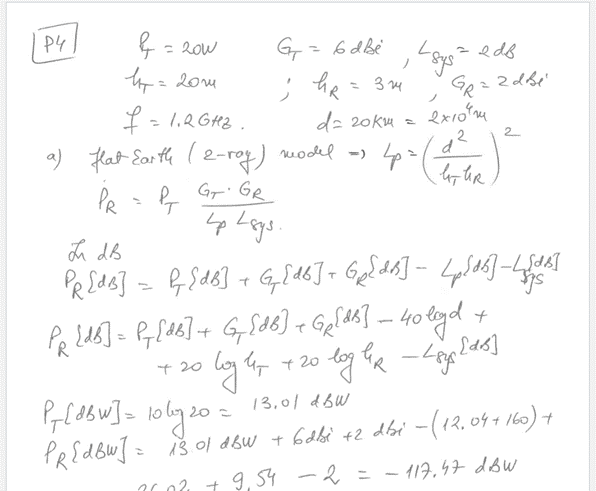 P4
P_T = 20W G_T = 6 dBi , L_sys = 2 dB
h_T = 20m ; h_R = 3 m , G_R = 2 dBi
f = 1.2 GHz . d = 20 km = 2x10^4 m
a) flat Earth (2-ray) model => L_p = (d^2 / h_T h_R)^2
P_R = P_T G_T · G_R / L_p L_sys .
In dB
P_R [dB] = P_T [dB] + G_T [dB] + G_R [dB] - L_p [dB] - L_sys [dB]
P_R [dB] = P_T [dB] + G_T [dB] + G_R [dB] - 40 log d +
+ 20 log h_T + 20 log h_R - L_sys [dB]
P_T [dBW] = 10 log 20 = 13.01 dBW
P_R [dBW] = 13.01 dBW + 6 dBi + 2 dBi - (12.04 + 160) +
26.02 + 9.54 - 2 = - 117.47 dBW